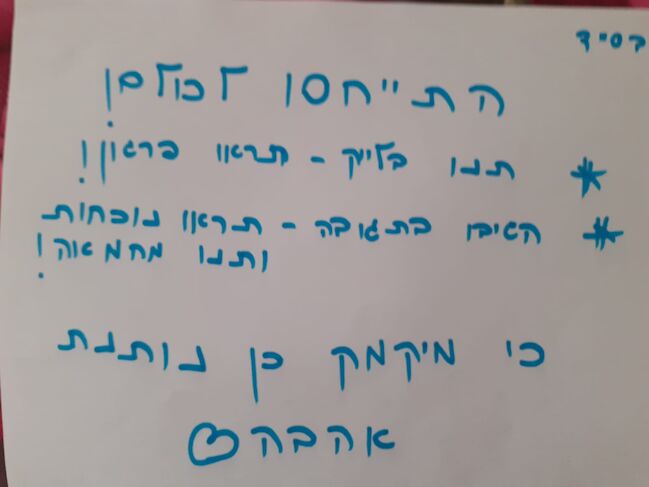 בסיד
התייחסו לכולם!
* תנו בלייק - תראו פרגון!
* הגיבו בתגובה - תראו נוכחות
ותנו מחמאה!
כי מיקמק כן נותנת
אהבה♡